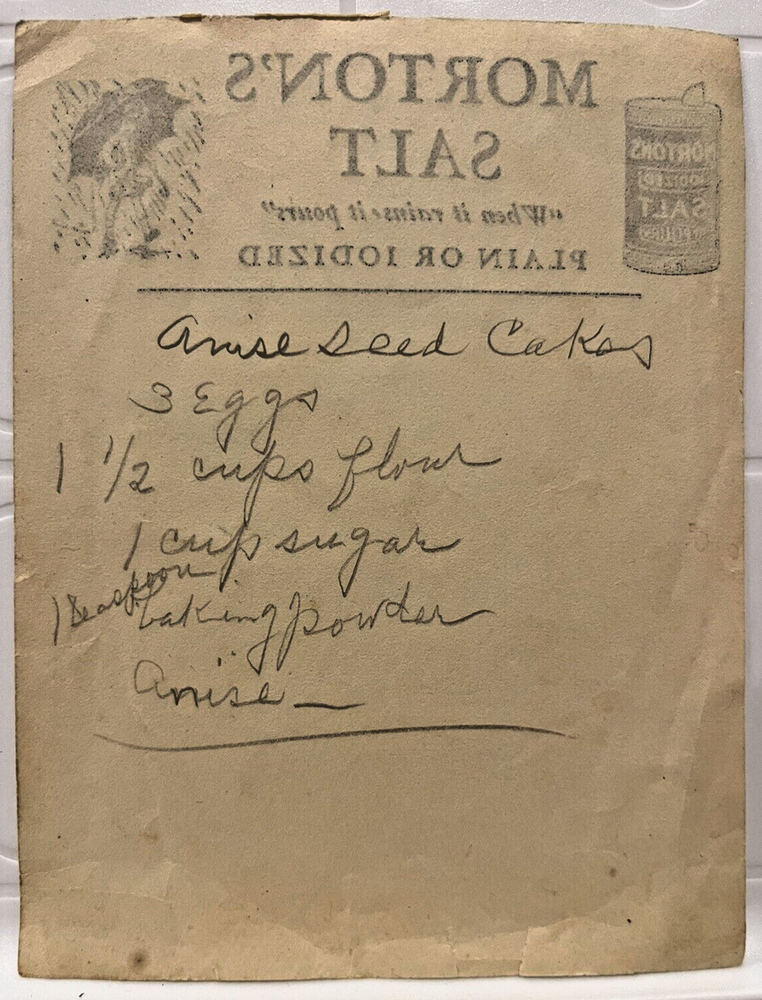 MORTON'S
SALT
"When it rains it pours"
PLAIN OR IODIZED
MORTON'S
IODIZED
SALT
IT POURS
Anise Seed Cakes
3 Eggs
1 1/2 cups flour
1 cup sugar
1 teaspoon
baking powder
Anise —